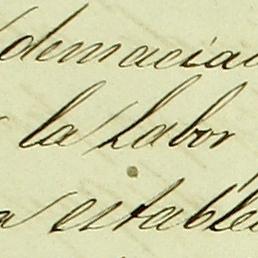 demacia
la labor
a estable